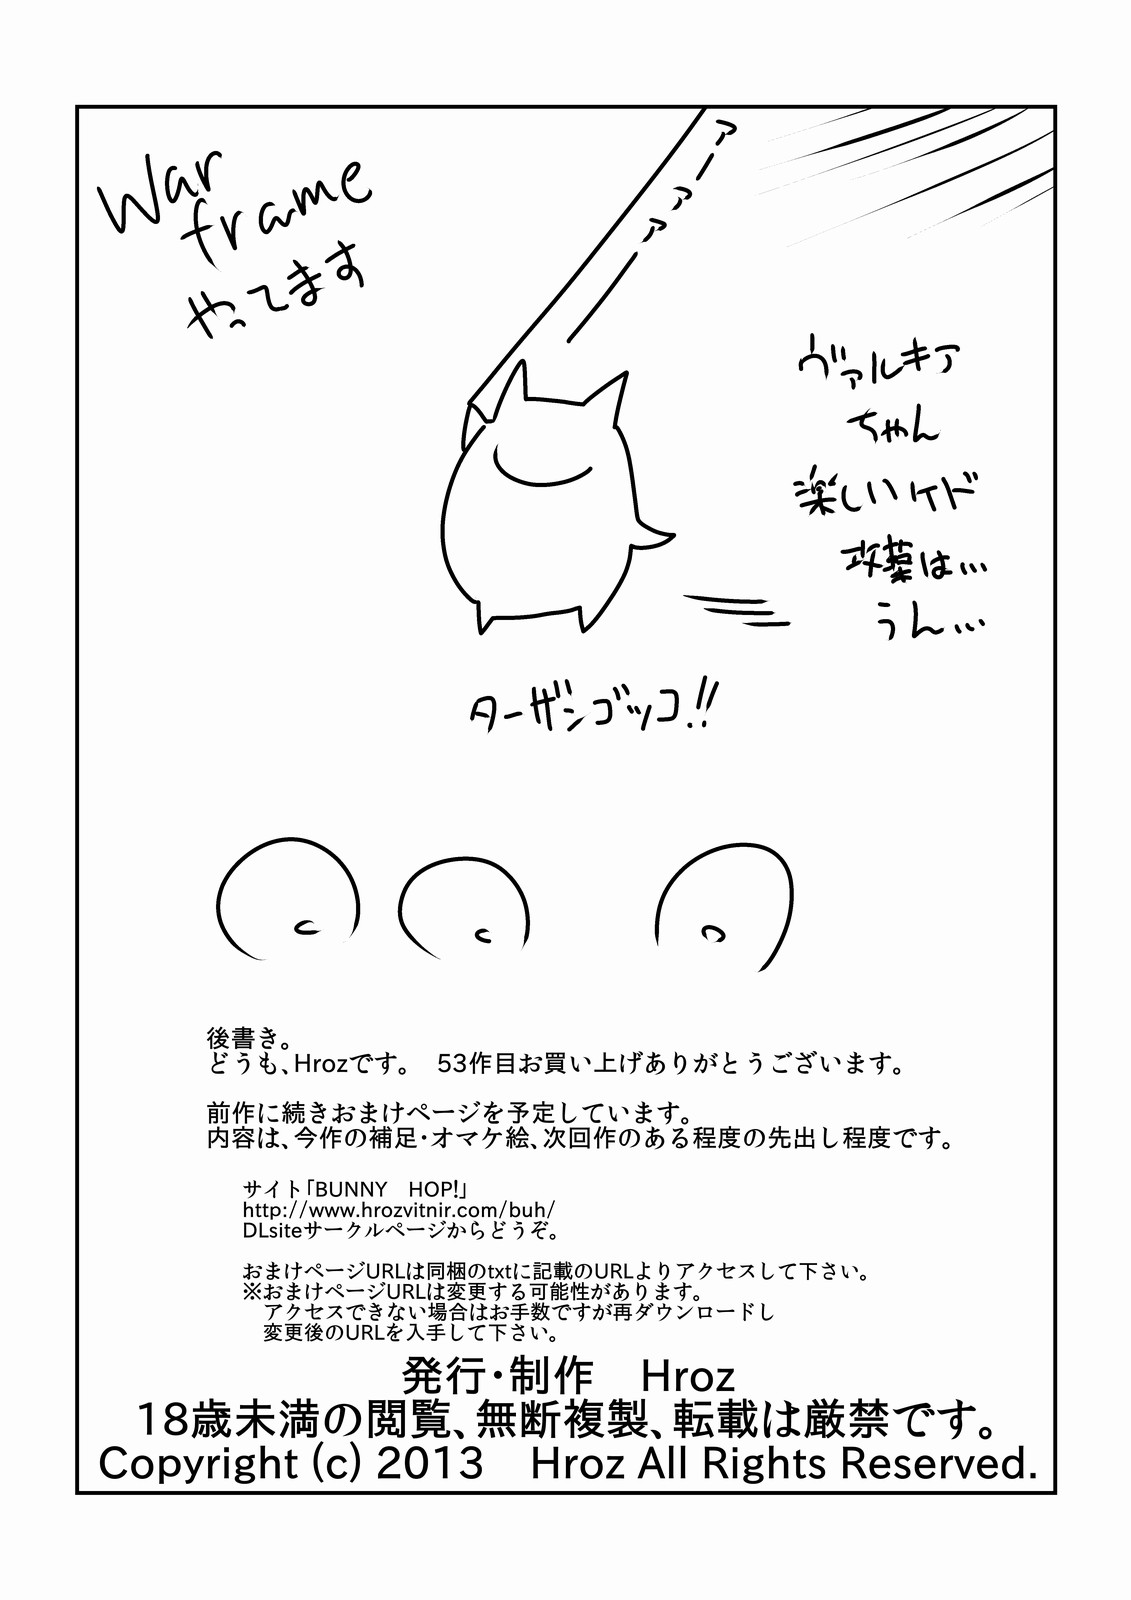 War
frame
やってます
アーァァー
ヴァルキア
ちゃん
楽しいケド
攻撃は…
うん…
ターザンゴッコ!!
後書き。
どうも、Hrozです。　53作目お買い上げありがとうございます。
前作に続きおまけページを予定しています。
内容は、今作の補足・オマケ絵、次回作のある程度の先出し程度です。
サイト「BUNNY　HOP!」
http://www.hrozvitnir.com/buh/
DLsiteサークルページからどうぞ。
おまけページURLは同梱のtxtに記載のURLよりアクセスして下さい。
※おまけページURLは変更する可能性があります。
アクセスできない場合はお手数ですが再ダウンロードし
変更後のURLを入手して下さい。
発行・制作　Hroz
18歳未満の閲覧、無断複製、転載は厳禁です。
Copyright (c) 2013　Hroz All Rights Reserved.